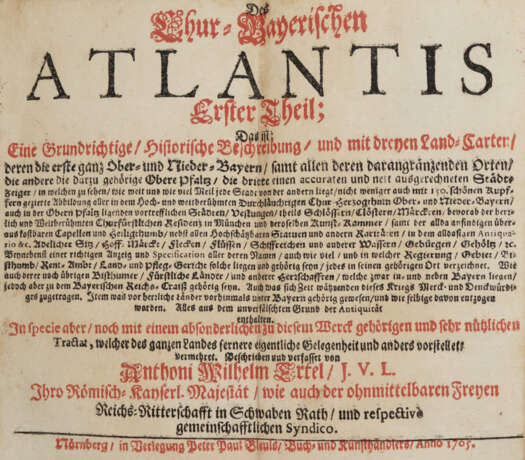 Des
Chur-Bayerischen
ATLANTIS
Erster Theil;
Das ist;
Eine Grundrichtige/ Historische Beschreibung/ und mit dreyen Land-Carten/
deren die erste ganz Ober- und Nieder-Bayern/ samt allen deren darangränzenden Orten/
die andere die darzu gehörige Obere Pfaltz/ die dritte einen accuraten und nett ausgerechneten Städte-
Zeiger/ in welchen zu sehen/ wie weit und wie viel Meil jede Stadt von der andern liegt/ nicht weniger auch mit 130. schönen Kupf-
fern gezierte Abbildung aller in dem Hoch- und weitberühmten Durchläuchtigen Chur-Herzogthum Ober- und Nieder-Bayern/
auch in der Obern Pfaltz ligenden vortrefflichen Städten/ Vestungen/ theils Schlössern/ Clöstern/ Märckten/ bevorab der herz-
lich und Weitberühmten Churfürstlichen Residentz in München und derselben Kunst-Kammer/ samt der allda anfindigen über-
aus kostbaren Capellen und Heiligthum/ nebst allen Hochschätzbaren Statuen und andern Raritäten/ in dem alldasigen Antiqua-
rio &c. Adelicher Sitz/ Hoff-Märck/ Flecken/ Flüssen/ Schiffreichen und anderer Wassern/ Gebürgen/ Gehöltz/ &c.
Benebenst einer richtigen Anzeig und Specification aller deren Namen/ auch wie viel/ und in welcher Regierung/ Gebiet/
Rent-Amdt/ Land- und Pfleg-Gericht solche liegen und gehörig seyn/ jedes in seinen gehörigen Ort verzeichnet. Wie
auch derer noch übrigen Bisthumer/ Fürstliche Länder/ und anderer Herzschafften/ welche zwar in- und neben Bayern liegen/
jedoch aber zu dem Bayerischen Reichs-Craiß gehörig seyn. Auch was sich Zeit währenden dieses Kriegs Merck- und Denckwürdi-
ges zugetragen. Item was vor herzliche Länder vordinmals unter Bayern gehörig gewesen/ und wie selbige davon entzogen
worden. Alles aus dem unverfälschten Grund der Antiquität
enthalten.
In specie aber/ noch mit einem absonderlichen zu diesem Werck gehörigen und sehr nützlichen
Tractat, welcher des ganzen Landes fernere eigentliche Gelegenheit und anders vorstellet/
vermehret. Beschrieben und verfasset von
Anthoni Wilhelm Ertel/ J. V. L.
Ihro Römisch-Kayserl. Majestät/ wie auch der ohnmittelbaren Freyen
Reichs-Ritterschafft in Schwaben Rath/ und respectivè
gemeinschafftlichen Syndico.
Nürnberg/ in Verlegung Peter Paul Bleuls/ Buch- und Kunsthändlers/ Anno 1705.